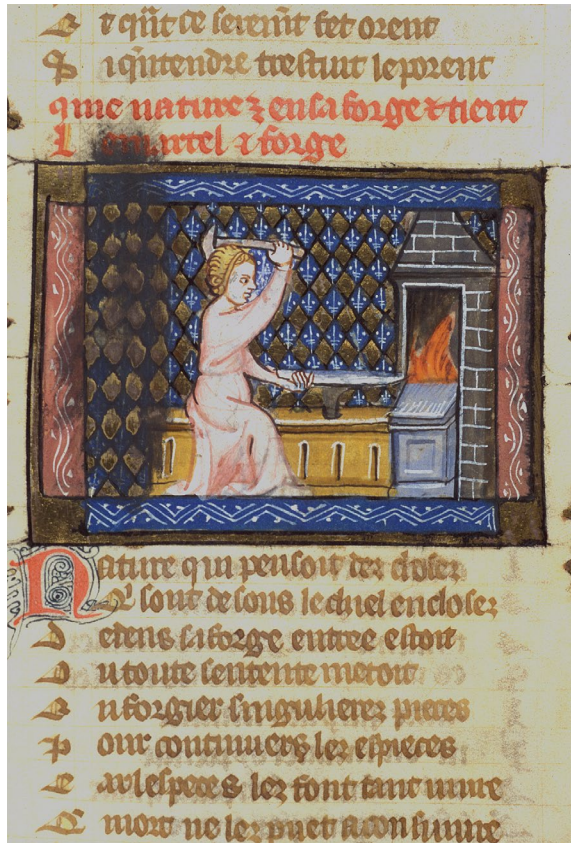 E t quant ce serement fet orent
S i quntendre trestuit le porent
que nature est en sa forge et tient
L mrtel et forge
Nature qui pensoit des choses
Qui sont desous le chiel encloses
D edens sa forge entree estoit
O u toute sentente metoit
E n forgier singulieres pieces
P our continuer les espieces
C ar lespeces les font tant vivre
Q mort ne les puet aconsuivre